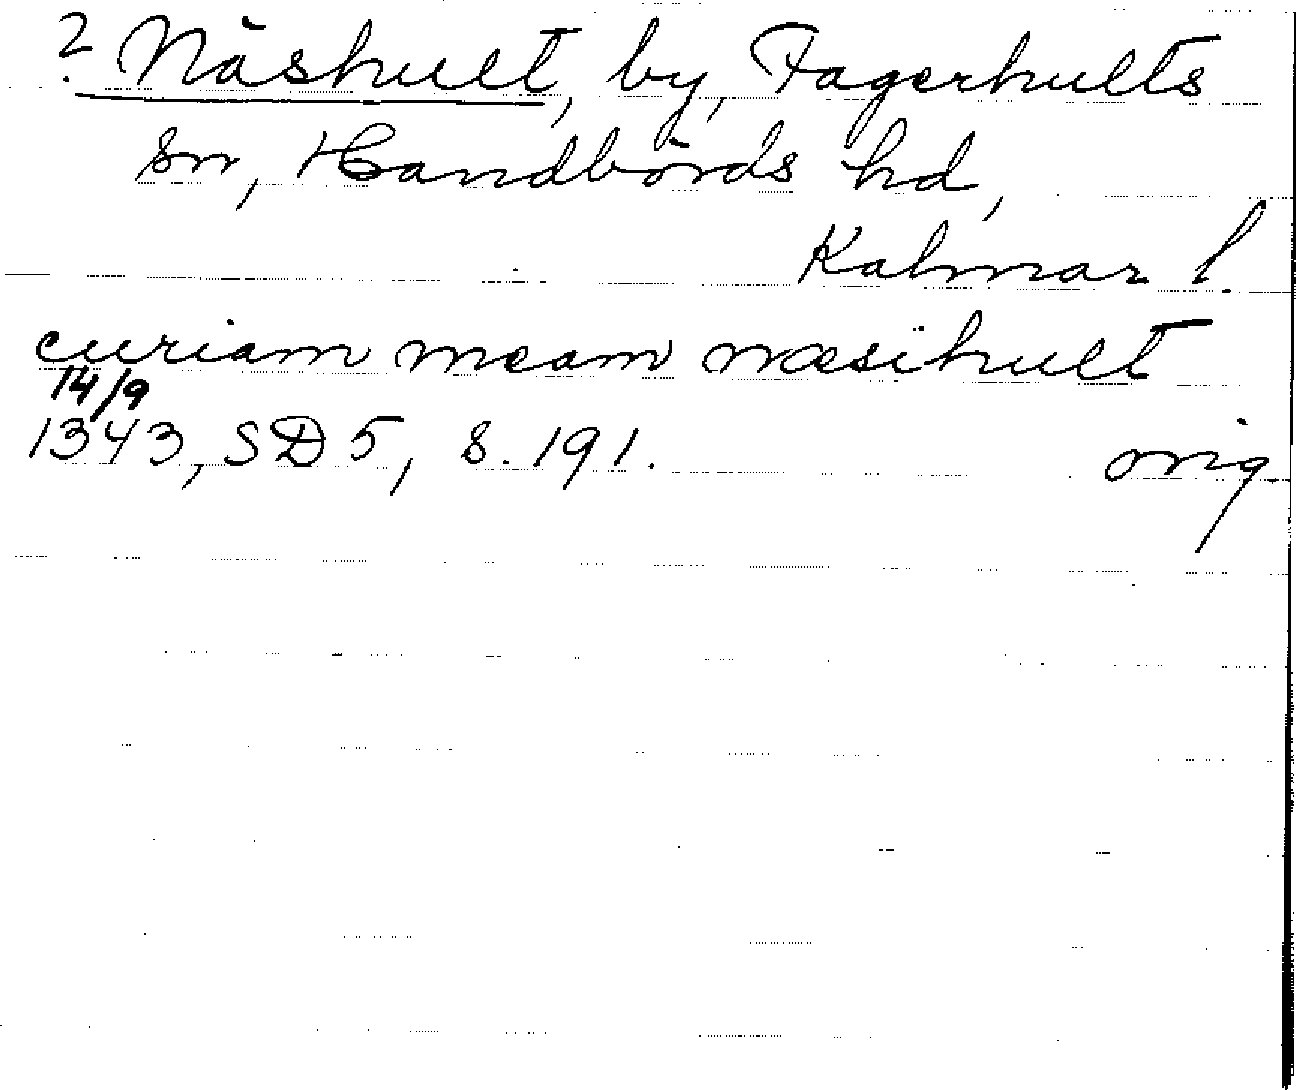 ? Näshult, by, Fagerhults
sn, Handbörds hd,
Kalmar l.
curiam meam næsihult
14/9
1343, SD 5, s. 191. orig.